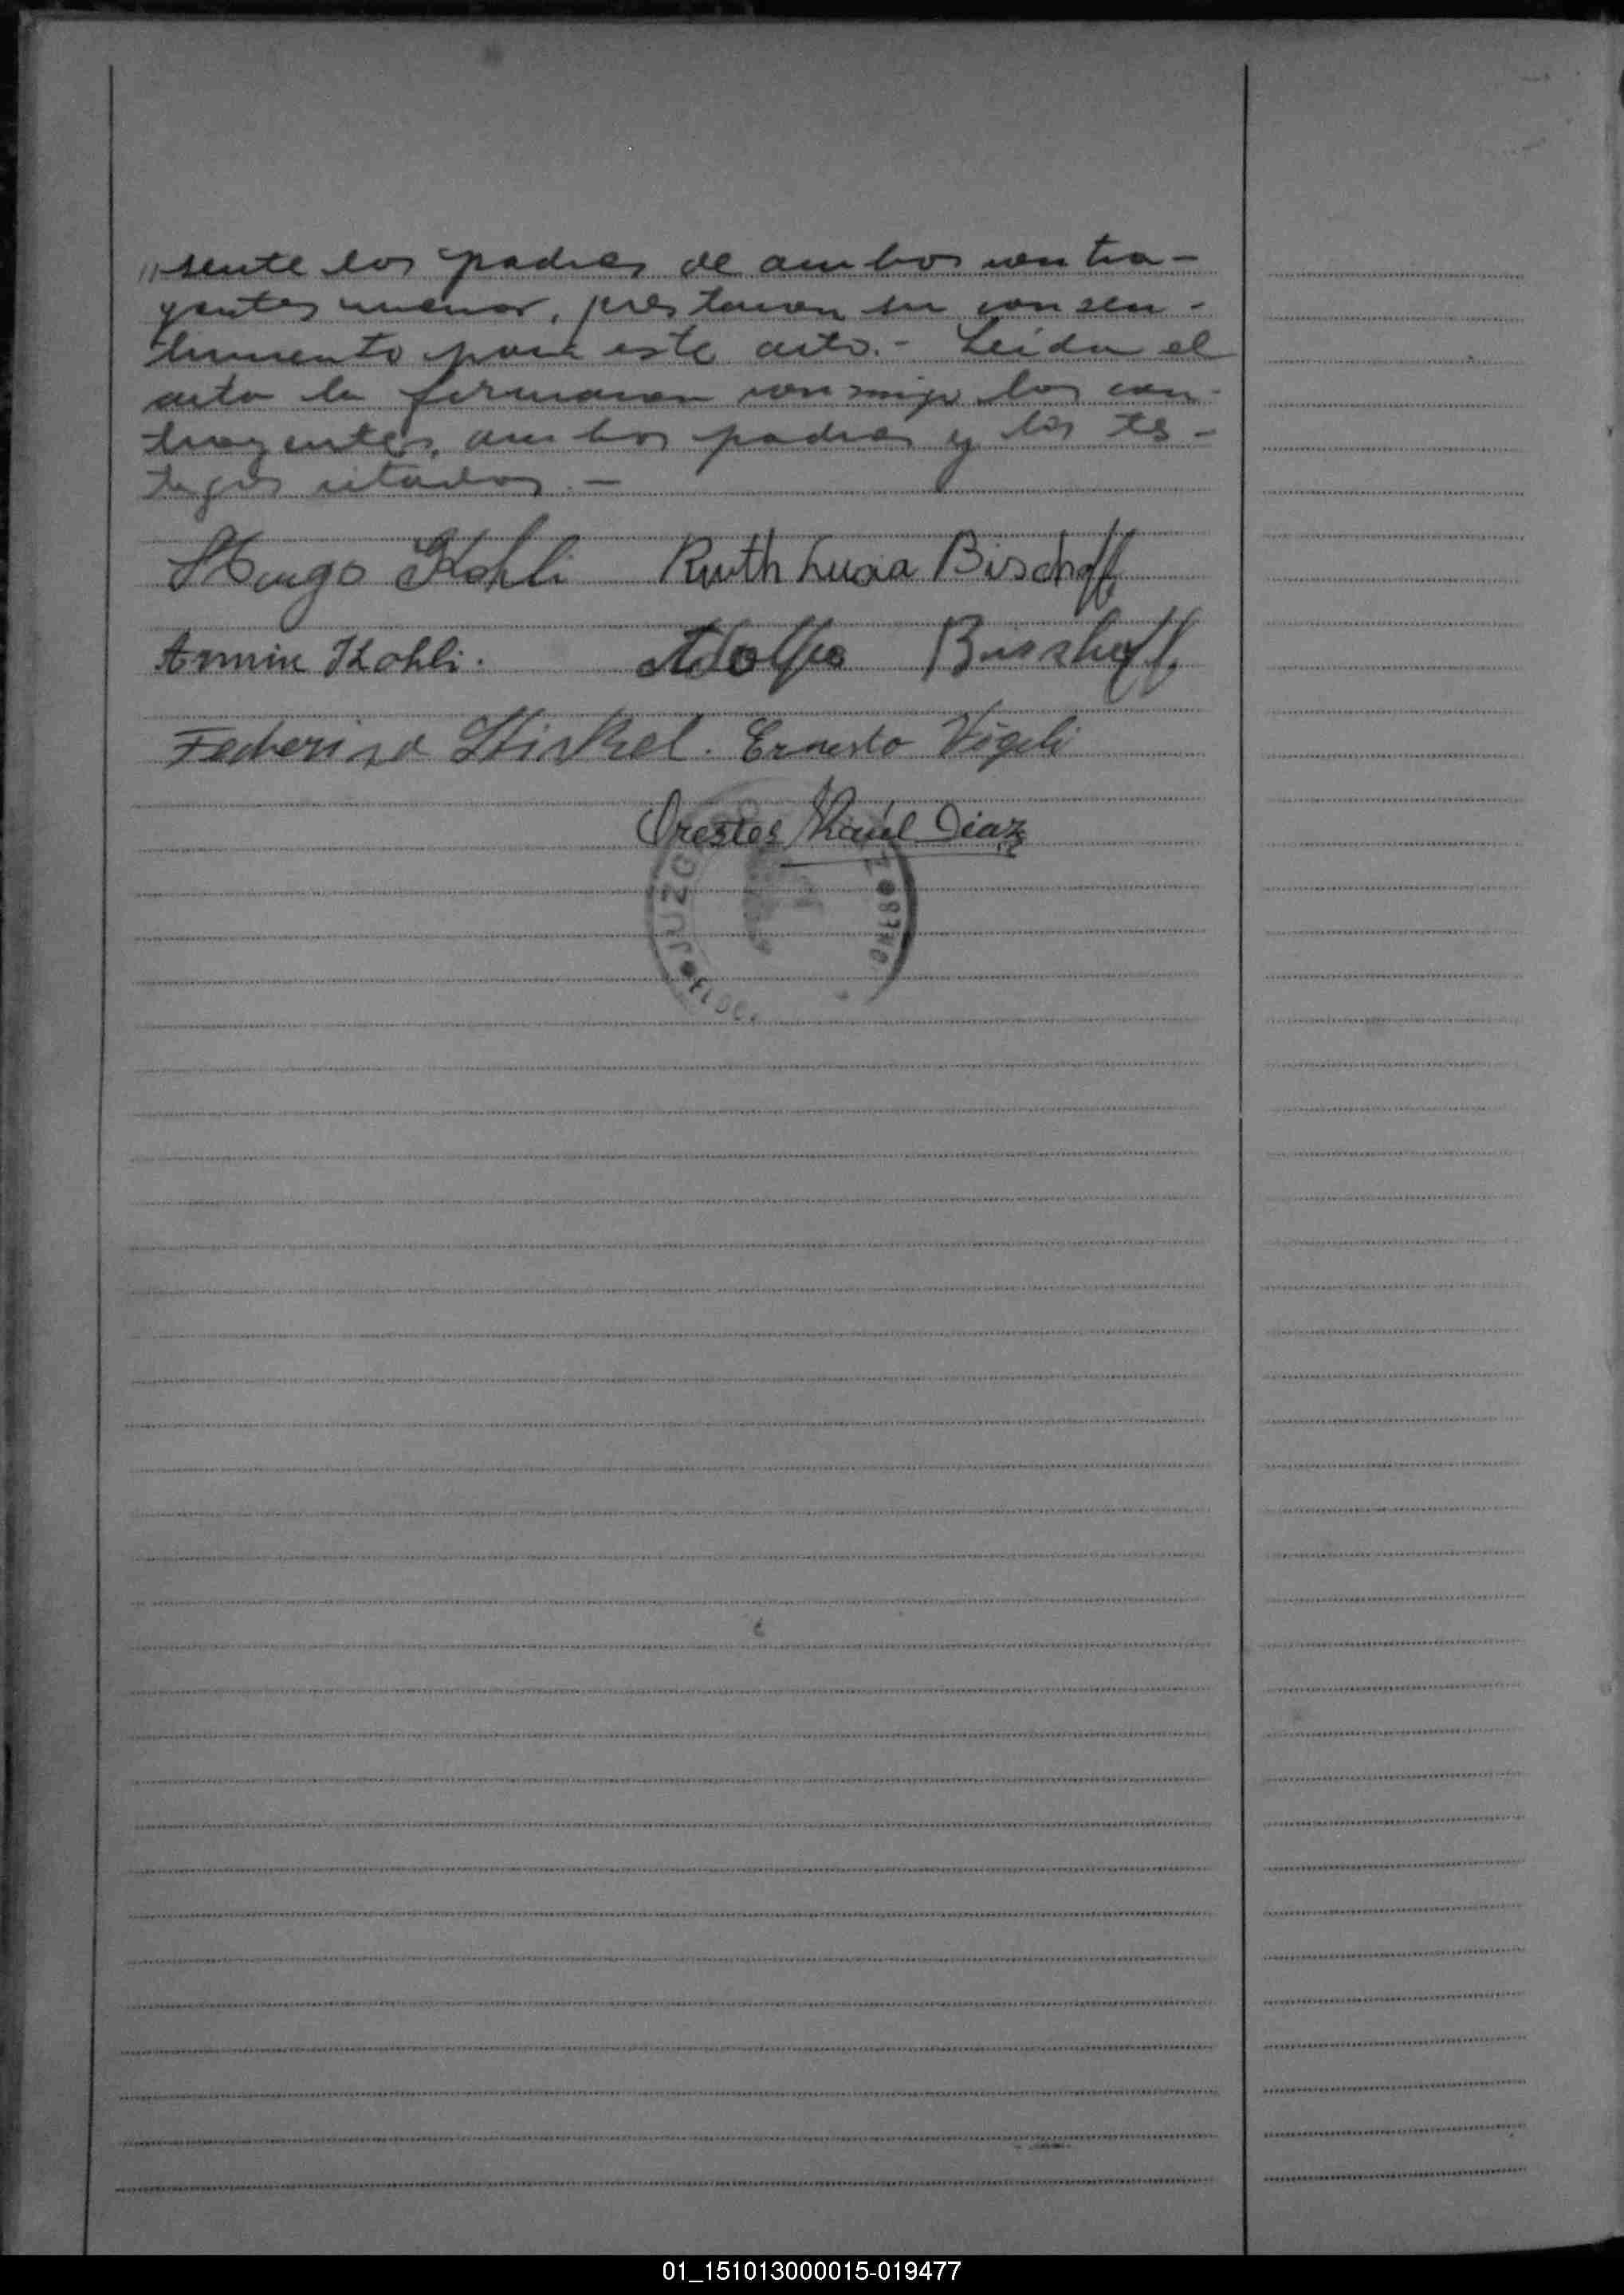 "sente los padres de ambos contra-
yentes menor, prestaron su consen-
timiento para este acto.- Leída el
acta la firmaron conmigo los con-
trayentes, ambos padres y los tes-
tigos citados.-
Hugo Kohli Ruth Lucia Bischoff
Armin Kohli. Adolfo Bischoff
Federico Ernesto Vögeli
Orestes Raúl Diaz
JUZG
01_151013000015-019477